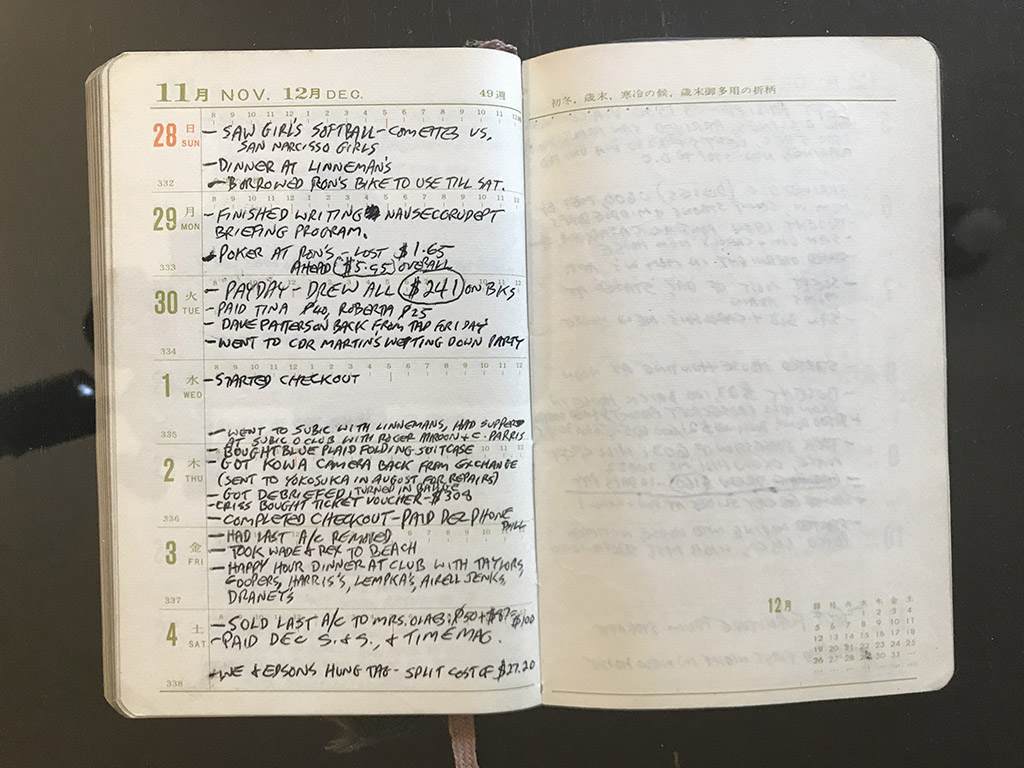 11月 NOV. 12月 DEC. 49週
28 日 SUN
- SAW GIRL'S SOFTBALL - COMETES VS.
SAN NARCISSO GIRLS
- DINNER AT LINNEMAN'S
332
- BORROWED RON'S BIKE TO USE TILL SAT.
29 月 MON
- FINISHED WRITING NAVSECGRUDEPT
BRIEFING PROGRAM.
- POKER AT RON'S - LOST $1.65
333
AHEAD ($5.95) OVERALL
30 火 TUE
- PAYDAY - DREW ALL $241 ON BKS
- PAID TINA $40, ROBERTA $25
- DAVE PATTERSON BACK FROM TAD FRIDAY
334
- WENT TO CDR MARTIN'S WETTING DOWN PARTY
1 水 WED
- STARTED CHECKOUT
335
- WENT TO SUBIC WITH LINNEMANS, HAD SUPPER
AT SUBIC O CLUB WITH ROGER & C. PARRIS
- BOUGHT BLUE PLAID FOLDING SUITCASE
2 木 THU
- GOT KOWA CAMERA BACK FROM EXCHANGE
(SENT TO YOKOSUKA IN AUGUST FOR REPAIRS)
- GOT DEBRIEFED, TURNED IN BADGE
- CRISS BOUGHT TICKET VOUCHER - $308
336
- COMPLETED CHECKOUT - PAID DEC PHONE
BILL
3 金 FRI
- HAD LAST A/C REMOVED
- TOOK WADE & REX TO BEACH
- HAPPY HOUR DINNER AT CLUB WITH TAYLORS,
COOPERS, HARRIS'S, LEMPKA'S, JENKS,
337
DRANETS
4 土 SAT
- SOLD LAST A/C TO MRS.
- PAID DEC S. & S., & TIME MAG.
338
- WE & EDSONS HUNG TAG - SPLIT COST OF $27.20
初冬，歳末，寒冷の候，歳末御多用の折柄
12月
日 月 火 水 木 金 土
1 2 3 4
5 6 7 8 9 10 11
12 13 14 15 16 17 18
19 20 21 22 23 24 25
26 27 28 29 30 31